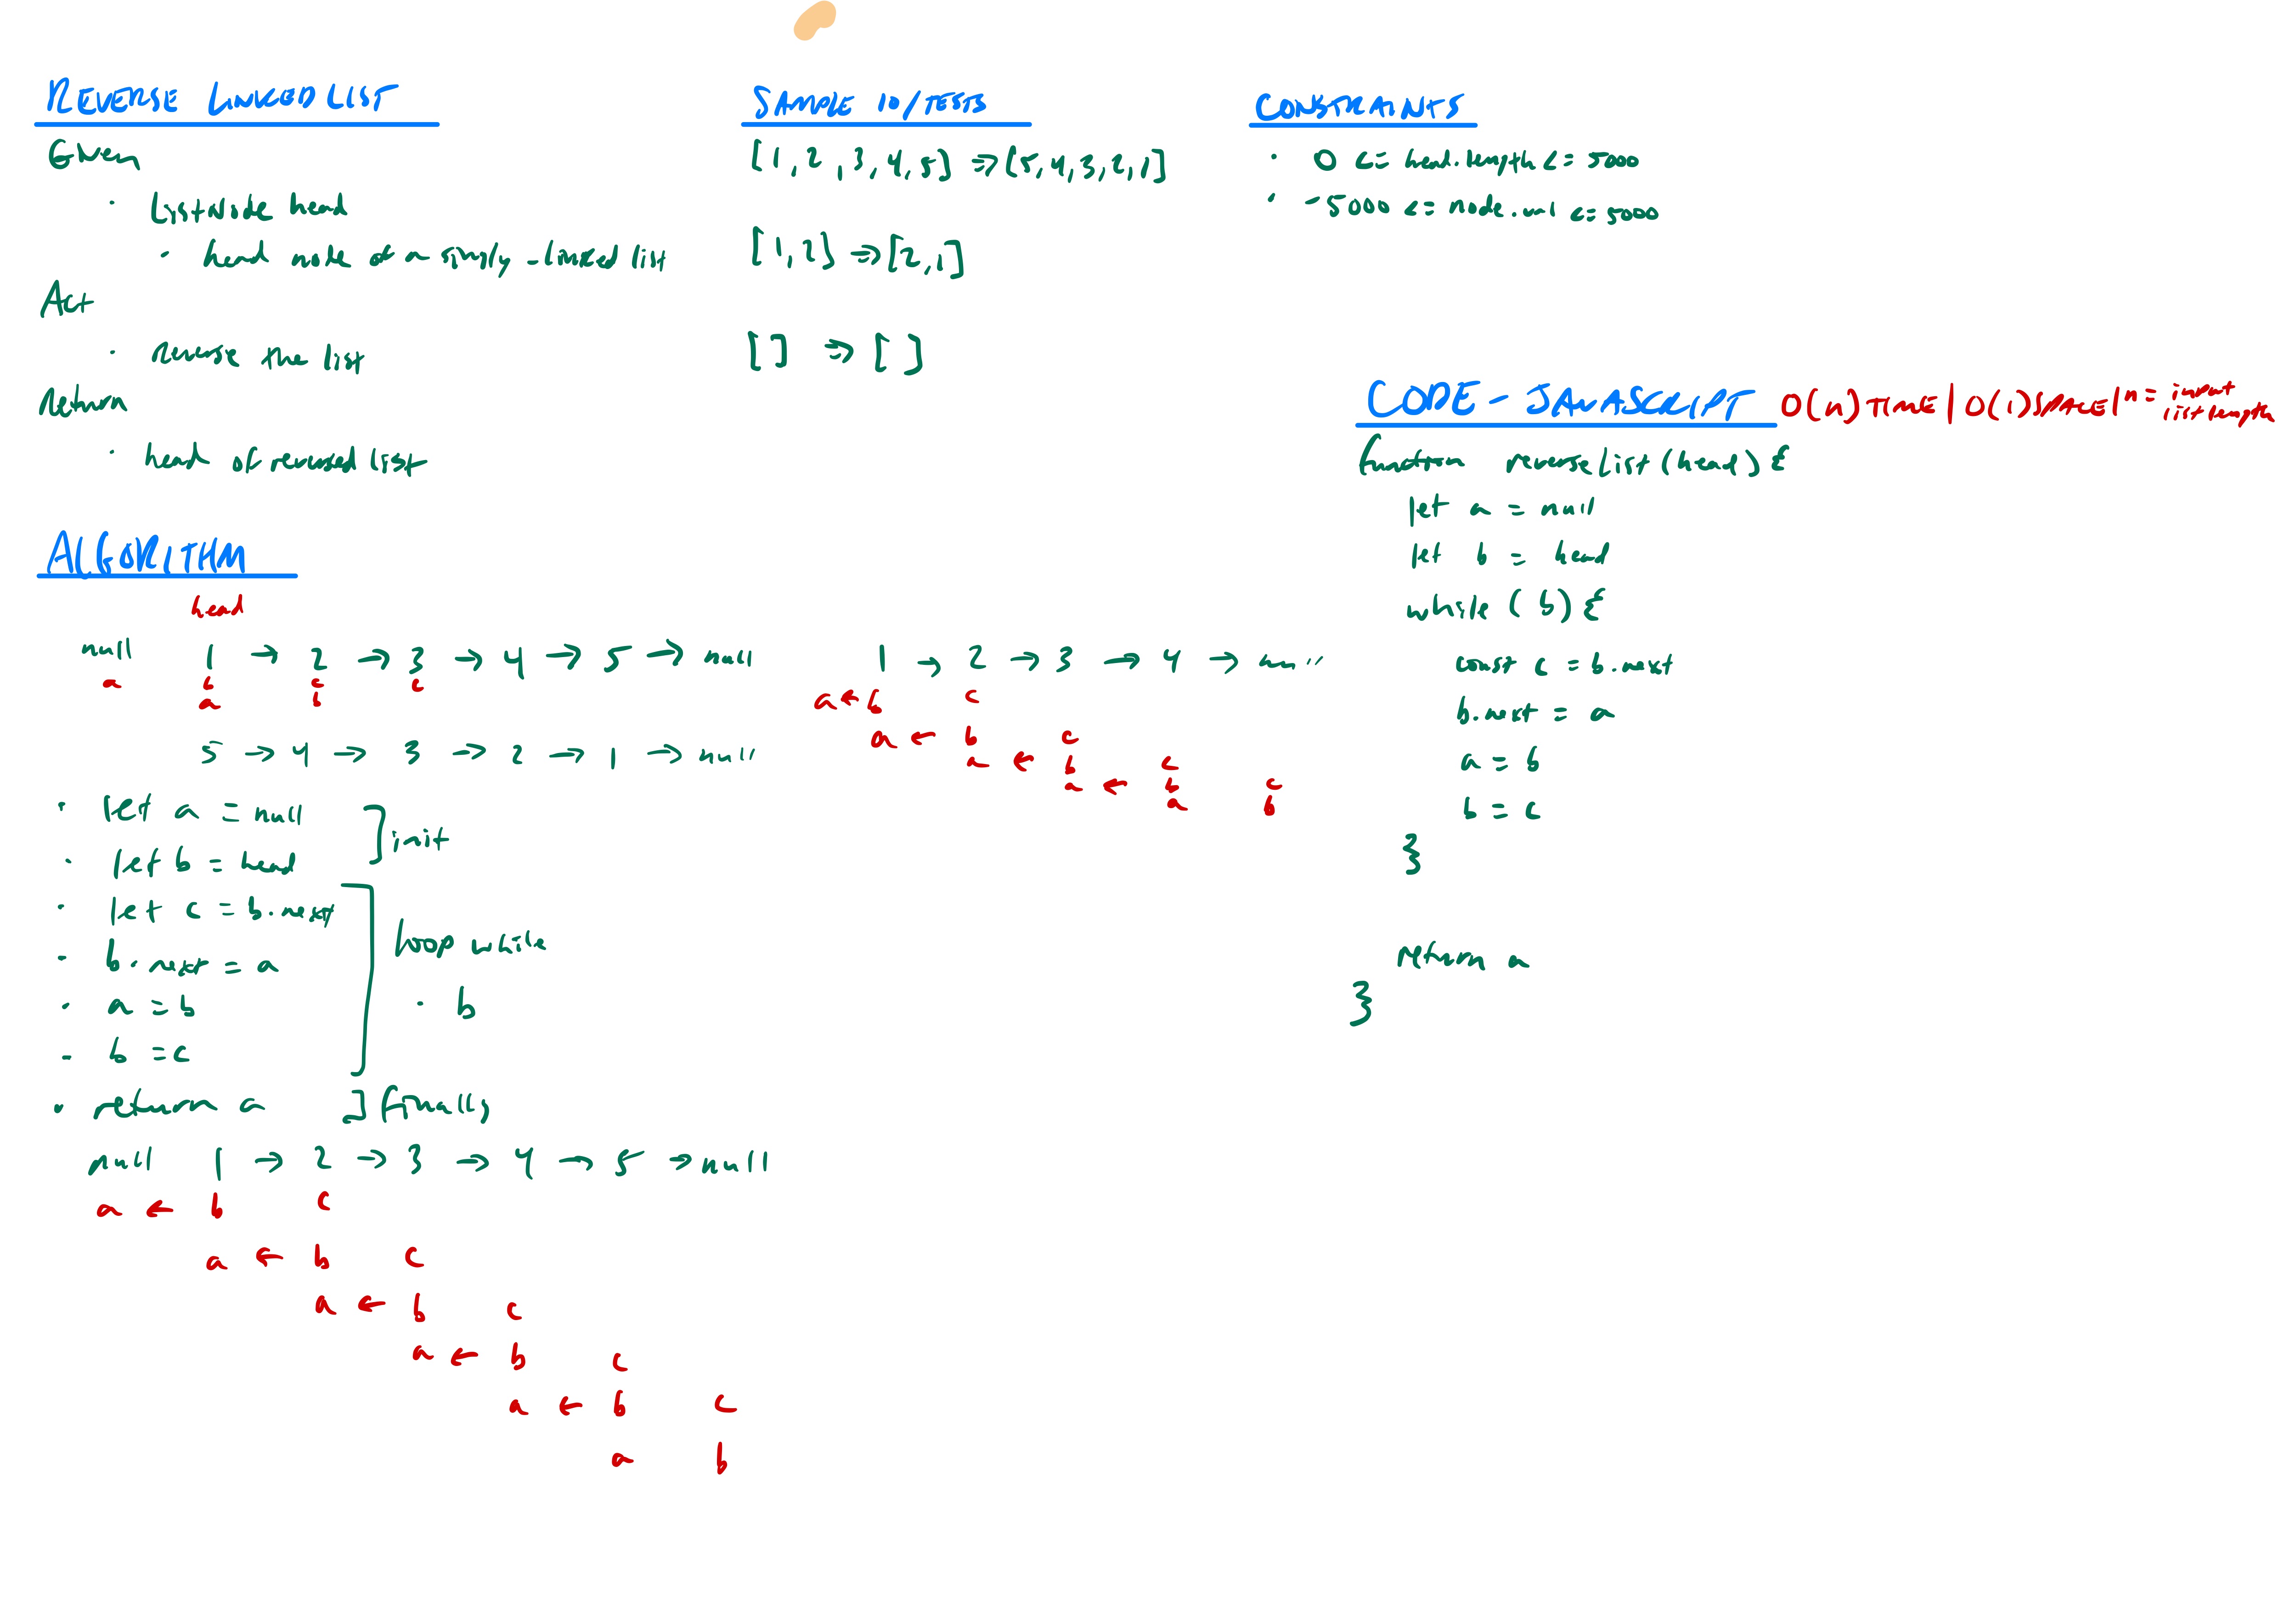 REVERSE LINKED LIST
Given
· ListNode head
· head node of a singly-linked list
Act
· reverse the list
Return
· head of reversed list
SAMPLE IO/TESTS
[1,2,3,4,5] => [5,4,3,2,1]
[1,2] => [2,1]
[] => []
CONSTRAINTS
· 0 <= head.length <= 5000
· -5000 <= node.val <= 5000
ALGORITHM
head
null 1 → 2 → 3 → 4 → 5 → null
a b c c
a b
5 → 4 → 3 → 2 → 1 → null
· let a = null
· let b = head
] init
· let c = b.next
· b.next = a
· a = b
- b = c
loop while
· b
· return a ] finally
null 1 → 2 → 3 → 4 → 5 → null
a ← b c
a ← b c
a ← b c
a ← b c
a ← b c
a b
1 → 2 → 3 → 4 → null
a ← b c
a ← b c
a ← b c
a ← b c
a b
CODE - JAVASCRIPT O(n) TIME | O(1) SPACE | n = input list length
function reverseList(head) {
let a = null
let b = head
while (b) {
const c = b.next
b.next = a
a = b
b = c
}
return a
}